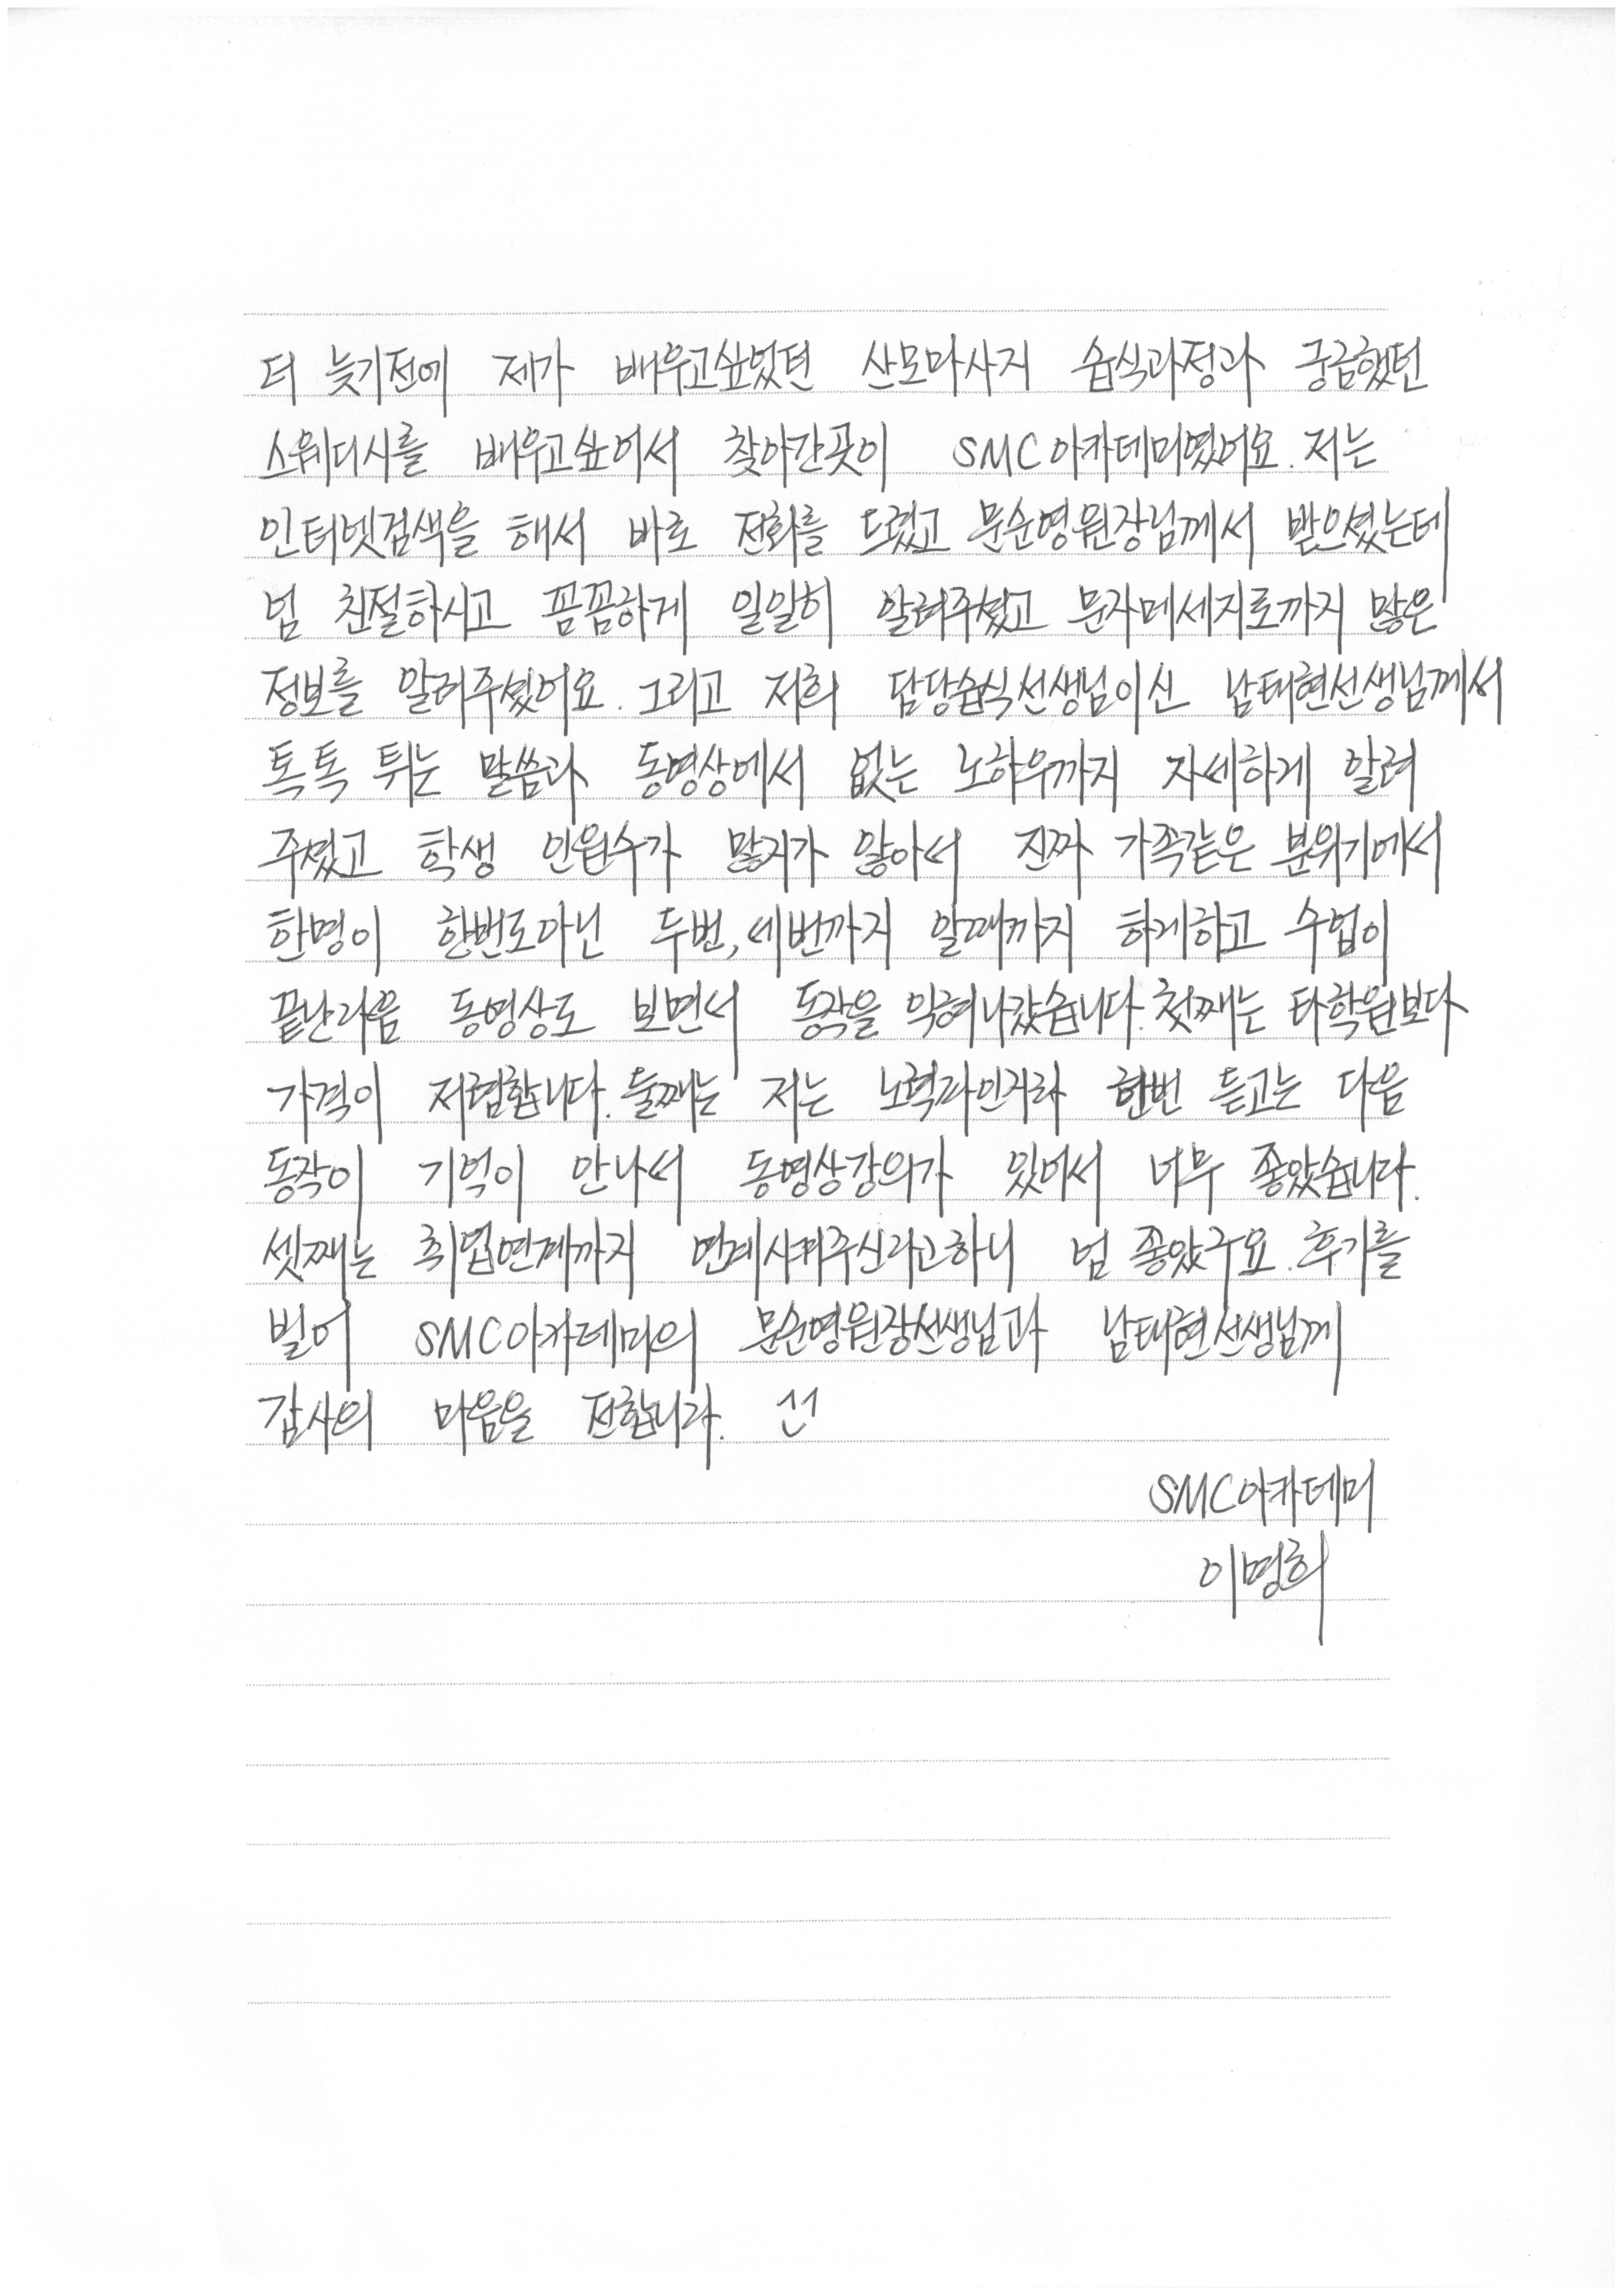 더 늦기전에 제가 배우고싶었던 산모마사지 습식과정과 궁금했던
스웨디시를 배우고싶어서 찾아간곳이 SMC아카데미였어요. 저는
인터넷검색을 해서 바로 전화를 드렸고 문순영원장님께서 받으셨는데
넘 친절하시고 꼼꼼하게 일일히 알려주셨고 문자메세지로까지 많은
정보를 알려주셨어요. 그리고 저희 담당습식선생님이신 남태현선생님께서
톡톡 튀는 말씀과 동영상에서 없는 노하우까지 자세하게 알려
주셨고 학생 인원수가 많지가 않아서 진짜 가족같은 분위기에서
한명이 한번도아닌 두번, 세번까지 알때까지 하게하고 수업이
끝난다음 동영상도 보면서 동작을 익혀나갔습니다. 첫째는 타학원보다
가격이 저렴합니다. 둘째는 저는 노력파인거라 한번 듣고는 다음
동작이 기억이 안나서 동영상강의가 있어서 너무 좋았습니다.
셋째는 취업연계까지 연계시켜주신라고하니 넘 좋았구요. 후기를
빌어 SMC아카데미의 문순영원장선생님과 남태현선생님께
감사의 마음을 전합니다.
SMC아카데미
이명희